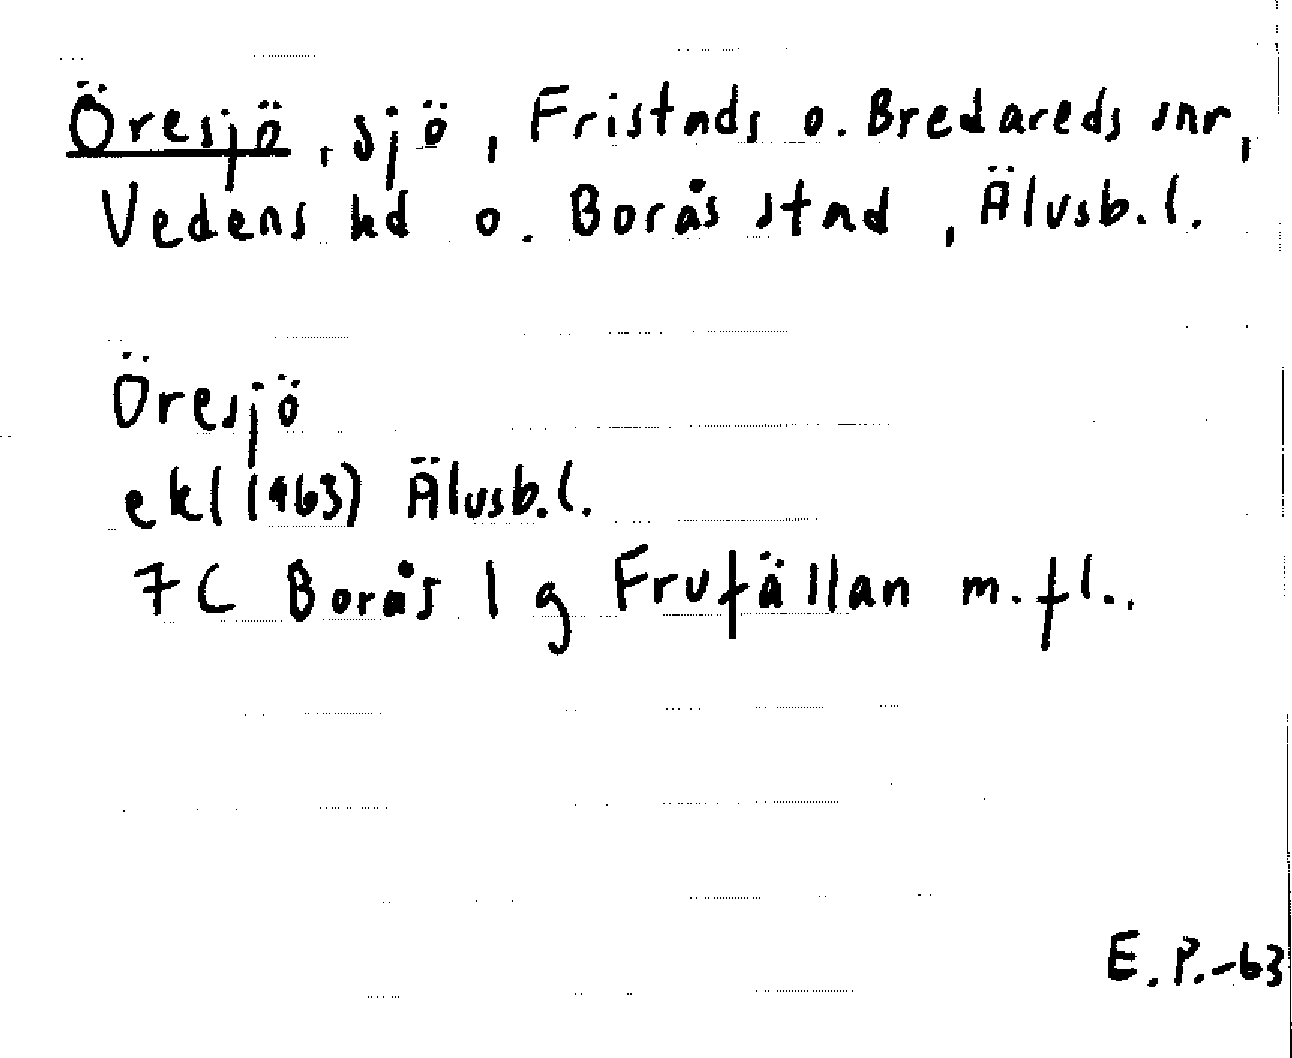 Öresjö, sjö, Fristads o. Bredareds snr,
Vedens hd o. Borås stad, Älvsb.l.
Öresjö
ekl (1963) Älvsb.l.
7C Borås l g Frufällan m.fl..
E.P.-63